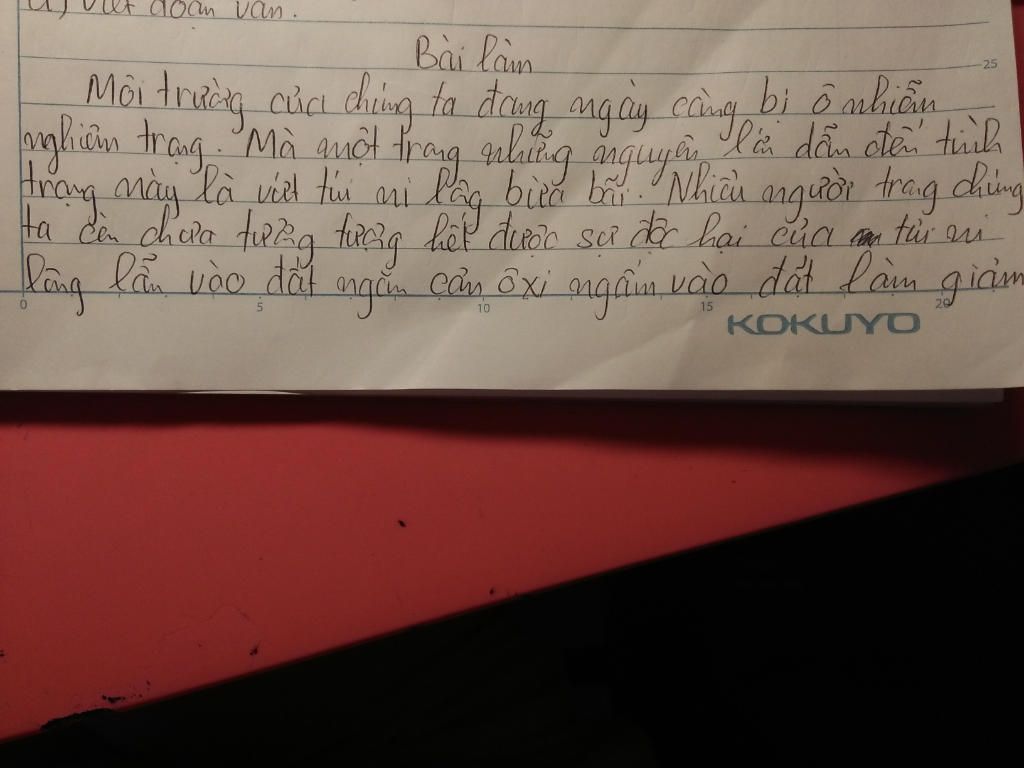 a) viết đoạn văn.
Bài làm
25
Môi trường của chúng ta đang ngày càng bị ô nhiễm
nghiêm trọng. Mà một trong những nguyên lớn dẫn đến tình
trạng này là viết túi ni lông bừa bãi. Nhiều người trong chúng
ta còn chưa tưởng tượng hết được sự độc hại của túi ni
lông lẫn vào đất ngăn cản ôxi ngấm vào đất làm giảm
0 5 10 15 20
KOKUYO